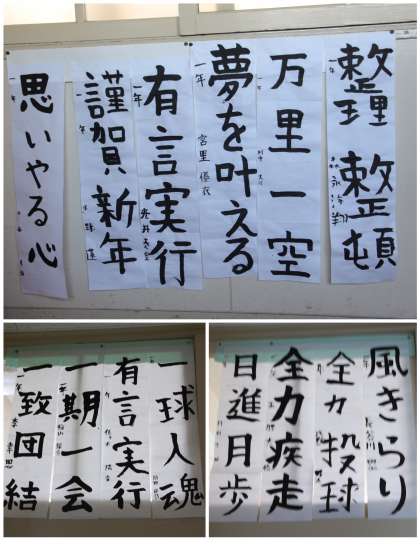 整理整頓
一年
万里一空
夢を叶える
一年
宮里
有言実行
一年
謹賀新年
一年
思いやる心
一年
一球入魂
有言実行
一年
一期一会
一致団結
一年
風きらり
一年
全力投球
全力疾走
日進月歩